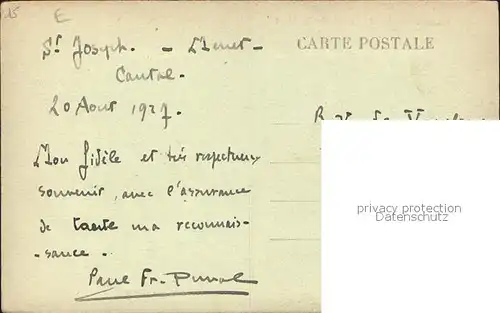 15
E
St Joseph. - Menet -
CARTE POSTALE
Cantal.
20 Aout 1927.
Mon fidèle et très respectueux
souvenir, avec l'assurance
de toute ma reconnais-
-sance.
Paul Fr.
privacy protection
Datenschutz